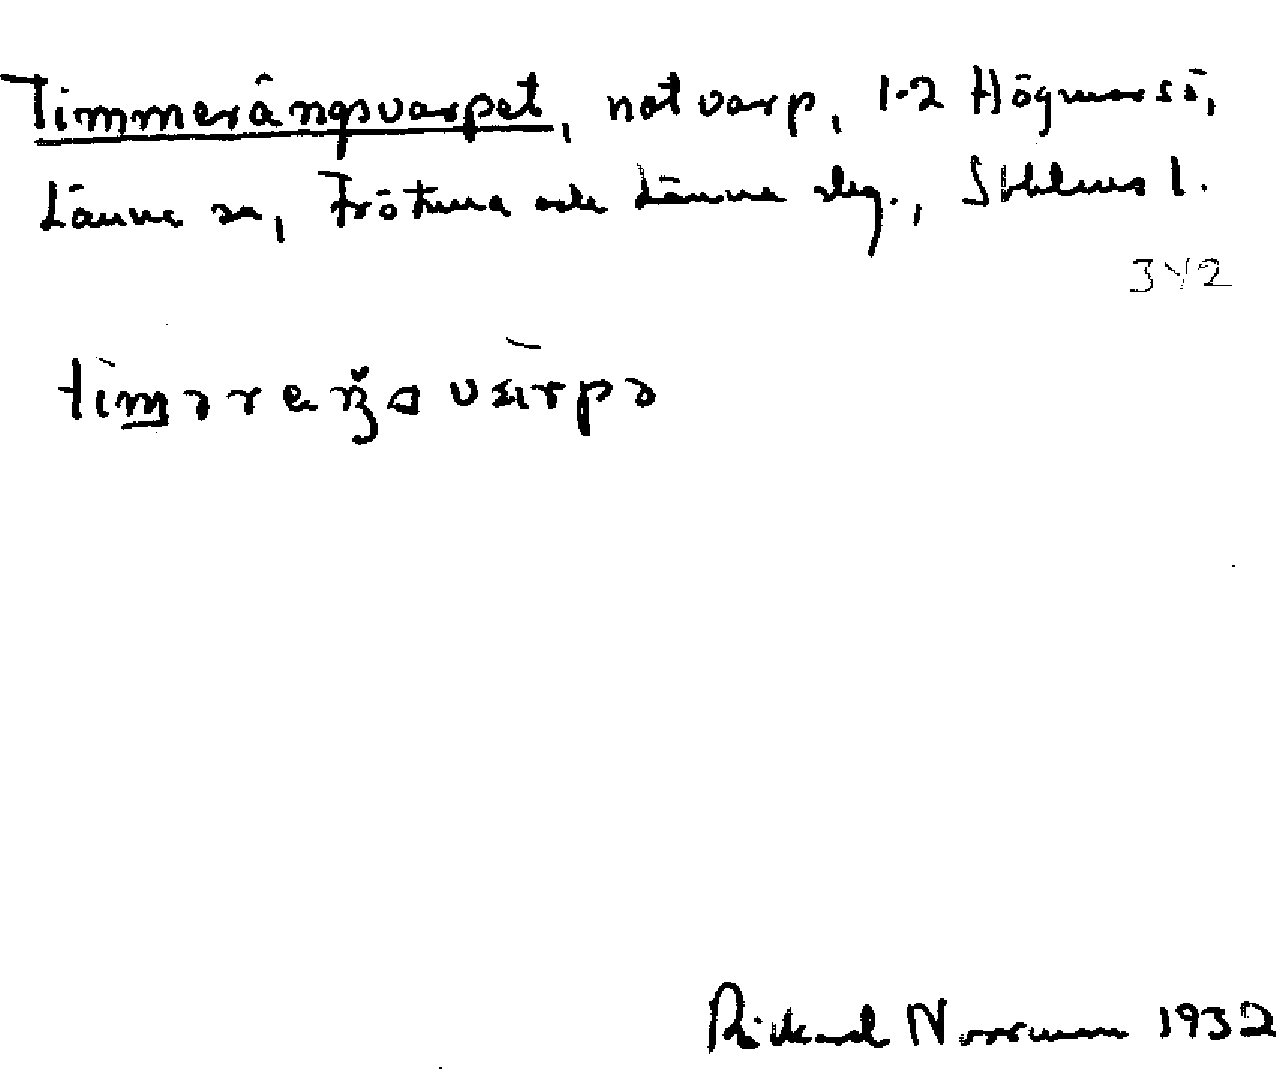 Timmerängsvarpet, notvarp, 1-2 Högmarsö,
Länna sn, Frötuna och Länna slg., Sthlms l.
3Y2
Rickard Norrman 1932